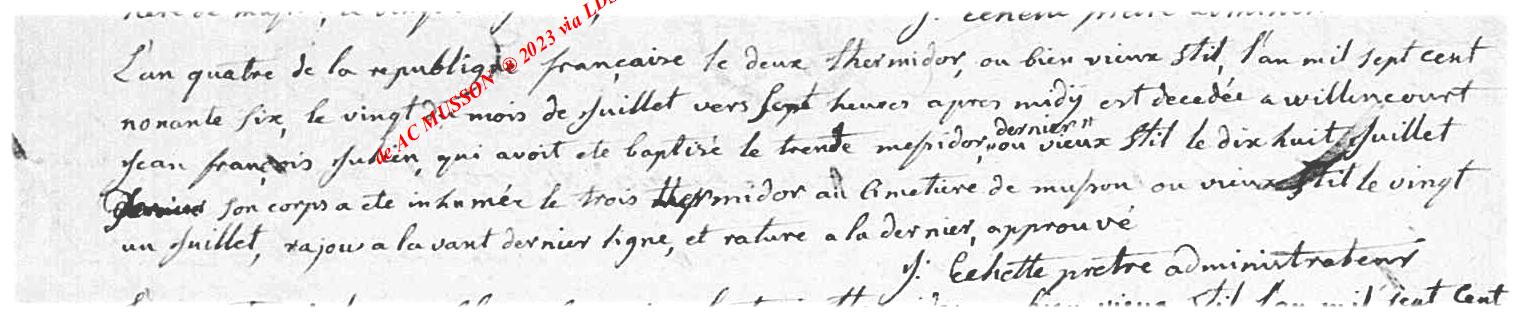 L'an quatre de la republique française le deux thermidor, ou bien vieux stil, l'an mil sept cent
nonante six, le vingt du mois de Juillet vers sept heures apres midÿ est decedée a willencourt
Jean françois Julien, qui avoit ete baptisé le trente messidor, "ou vieux stil le dix huit Juillet
dernier"
son corps a ete inhumée le trois thermidor au Cimetiere de musson ou vieux stil le vingt
un Juillet, rajous a lavant dernier ligne, et rature a la dernier, approuvé
J: Echette pretre administrateur
de AC MUSSON ® 2023 via LDS